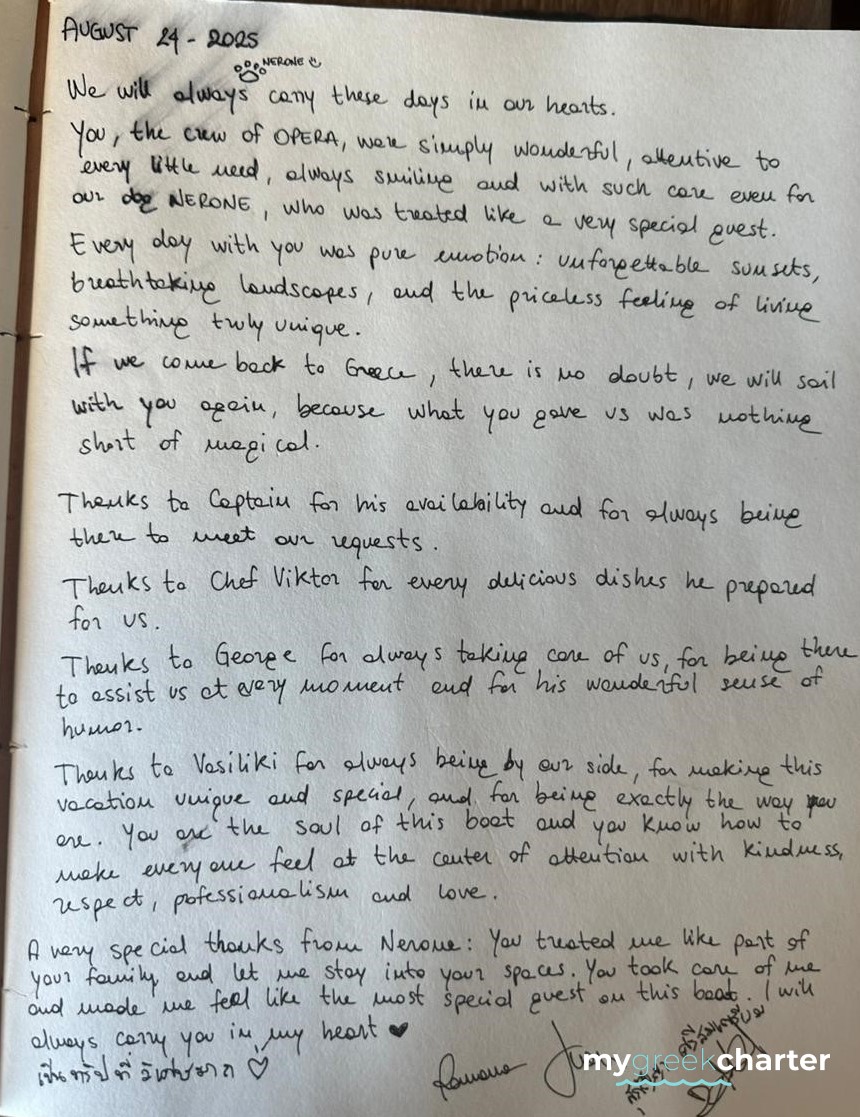 AUGUST 24 - 2025
NERONE
We will always carry these days in our hearts.
You, the crew of OPERA, were simply wonderful, attentive to
every little need, always smiling and with such care even for
our dog NERONE, who was treated like a very special guest.
Every day with you was pure emotion: unforgettable sunsets,
breathtaking landscapes, and the priceless feeling of living
something truly unique.
If we come back to Greece, there is no doubt, we will sail
with you again, because what you gave us was nothing
short of magical.
Thanks to Captain for his availability and for always being
there to meet our requests.
Thanks to Chef Viktor for every delicious dishes he prepared
for us.
Thanks to George for always taking care of us, for being there
to assist us at every moment and for his wonderful sense of
humor.
Thanks to Vasiliki for always being by our side, for making this
vacation unique and special, and for being exactly the way you
are. You are the soul of this boat and you know how to
make everyone feel at the center of attention with kindness,
respect, pofessionalism and love.
A very special thanks from Nerone: You treated me like part of
your family and let me stay into your spaces. You took care of me
and made me feel like the most special guest on this boat. I will
always carry you in my heart
เป็นทริปที่
Romano
mygreekcharter